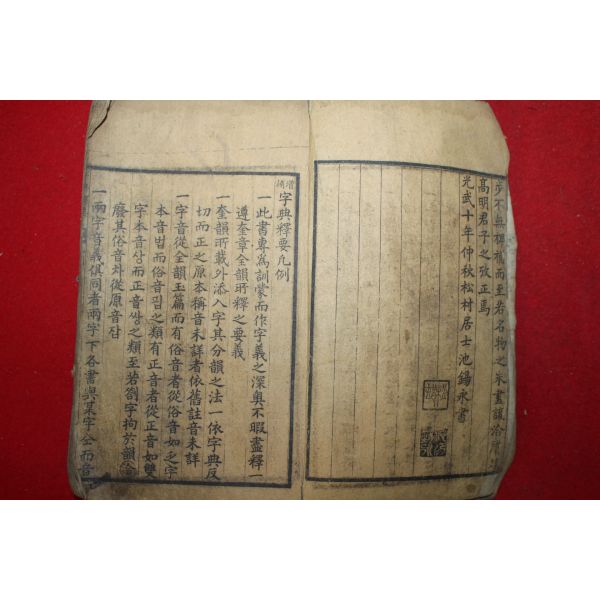 少不無補於而至若名物之未盡該洽
高明君子之攷正焉
光武十年仲秋松村居士池錫永書
增補
字典釋要凡例
一此書專爲訓蒙而作字義之深奧不暇盡釋一
遵奎章全韻所釋之要義
一奎韻所載外添入字其分韻之法一依字典反
切而正之原本稱音未詳者依舊註音未詳
一字音從全韻玉篇而有俗音者從俗音如乏字
本音법而俗音핍之類有正音者從正音如雙
字本音상而正音쌍之類至若劄字拘於韻
廢其俗音차從原音잡
一兩字音義俱同者兩字下各書與某字仝而音